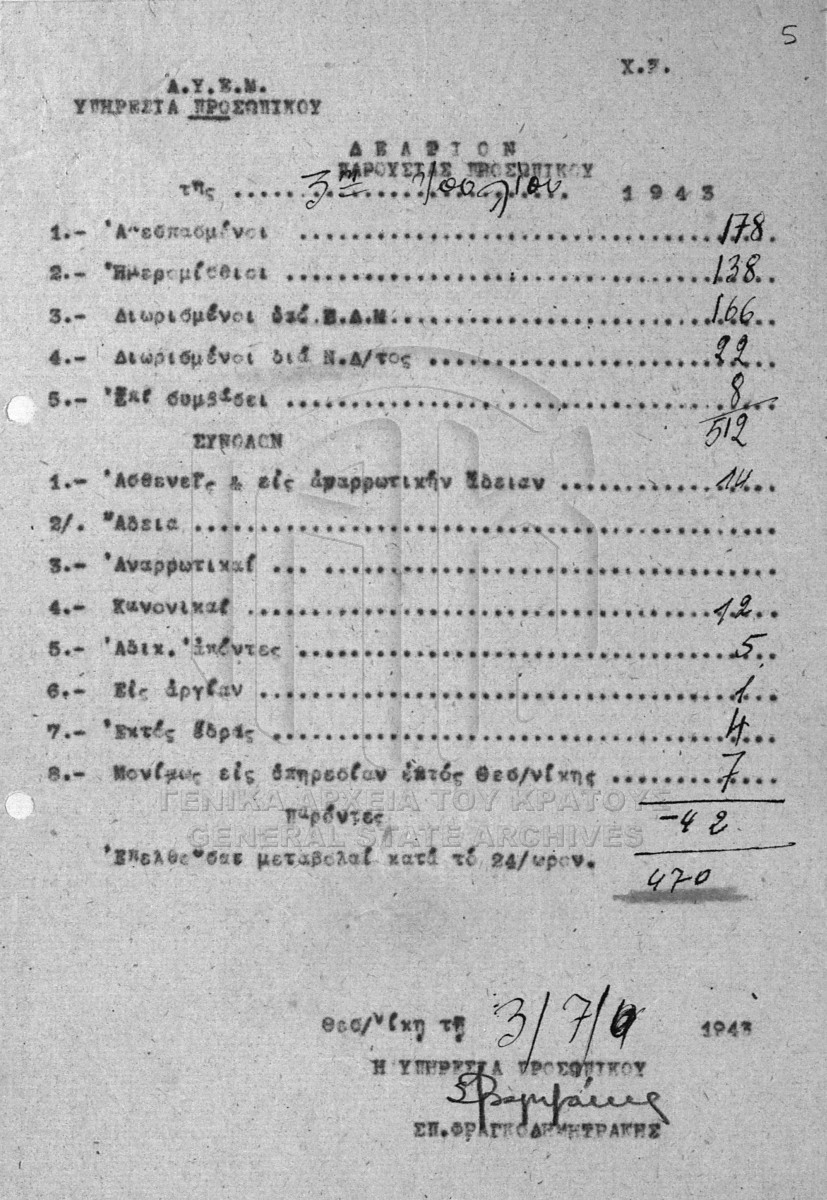 5
Χ.Σ.
Δ.Υ.Ε.Μ.
ΥΠΗΡΕΣΙΑ ΠΡΟΣΩΠΙΚΟΥ
ΔΕΛΤΙΟΝ
ΠΑΡΟΥΣΙΑΣ ΠΡΟΣΩΠΙΚΟΥ
της ..... 3ης Ιουλίου ..... 1943
1.- Ἀποσπασμένοι .......... 178
2.- Ἡμερομίσθιοι .......... 138
3.- Διωρισμένοι ὑπό .......... 166
4.- Διωρισμένοι διά Ν.Δ/τος .......... 22
5.- Ἐπί συμβάσει .......... 8
512
ΣΥΝΟΛΟΝ
1.- Ἀσθενεῖς & εἰς ἀναρρωτικήν ἄδειαν .......... 14
2/. Ἄδεια ..........
3.- Ἀναρρωτικαί ... ..........
4.- Κανονικαί .......... 12
5.- Ἀδικ. Ἀπόντες .......... 5
6.- Εἰς ἀργίαν .......... 1
7.- Ἐκτός ἕδρας .......... 4
8.- Μονίμως εἰς ὑπηρεσίαν ἐκτός Θεσ/νίκης .......... 7
ΓΕΝΙΚΑ ΑΡΧΕΙΑ ΤΟΥ ΚΡΑΤΟΥΣ
Παρόντες -42
GENERAL STATE ARCHIVES
Ἐπελθοῦσαι μεταβολαί κατά τό 24/ωρον.
470
Θεσ/νίκη τῇ 3/7/ 1943
Η ΥΠΗΡΕΣΙΑ ΠΡΟΣΩΠΙΚΟΥ
ΣΠ.ΦΡΑΓΚΟΔΗΜΗΤΡΑΚΗΣ